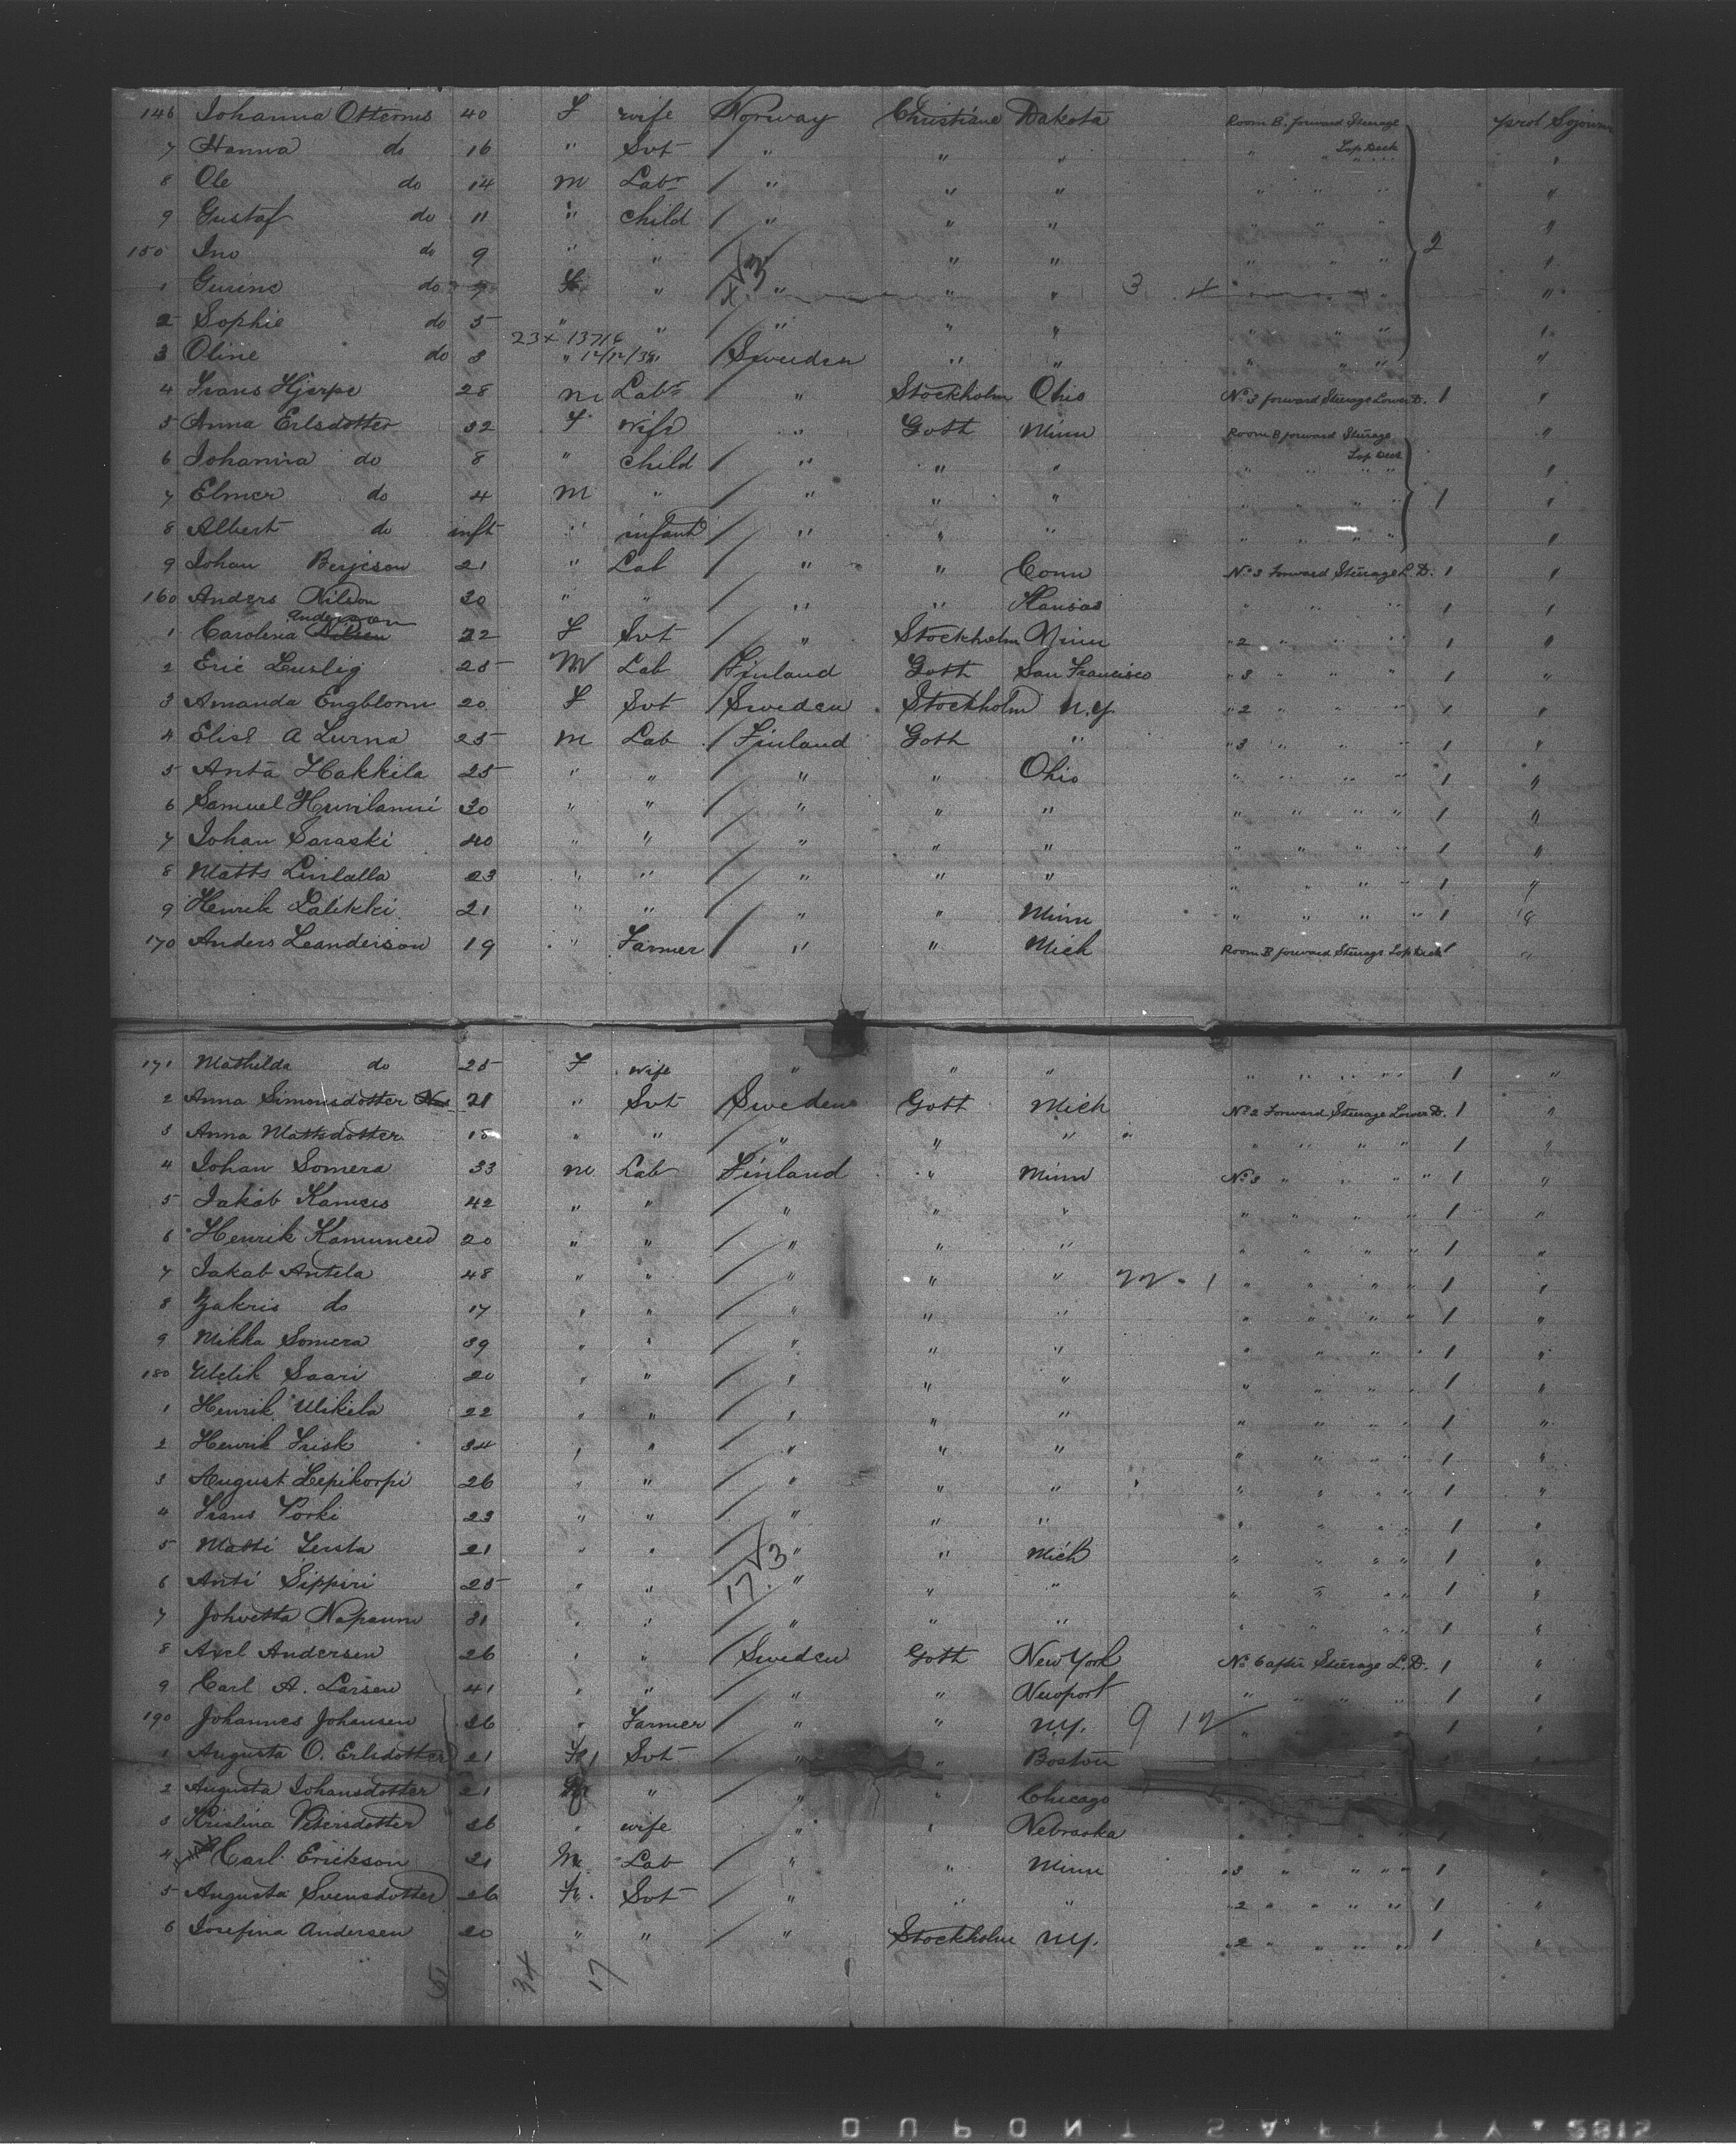 146 Johanna Otternes 40 F wife Norway Christiane Dakota Room B. forward Steerage prot Sojourn
7 Hanna do 16 " Svt / " " " " " Top Deck "
8 Ole do 14 M Labr / " " " " " " "
9 Gustaf do 11 " child / " " " " " " "
150 Ino do 9 " " / " " " " " " 2 "
1 Gurine do 7 F " X " " " 3 4 " "
2 Sophie do 5 " " / " " " " " " "
23x 13714
3 Oline do 3 " 12/12/38 / Sweden " " " " " "
4 Frans Hjerpe 28 M Labr " Stockholm Ohio No 3 forward Steerage Lower D. 1 "
5 Anna Erlsdotter 32 F wife " Goth Minn Room B forward Steerage "
Top Deck
6 Johanna do 8 " child / " " " " " " "
7 Elmer do 4 M " / " " " " " " 1 "
8 Albert do inft " infant / " " " " " " "
9 Johan Berjeson 21 " Lab / " " Conn No 3 Forward Steerage L. D. 1 "
160 Anders Nilson 20 " " / " " Kansas " " " 1 "
Anderson
1 Carolina Nilsen 22 F Svt / " Stockholm Minn " 2 " " 1 "
2 Eric Luslig 25 M Lab / Finland Goth San Francisco " 3 " " " 1 "
3 Amanda Engblom 20 F Svt / Sweden Stockholm N.Y. " 2 " " " 1 "
4 Elise A Lurna 25 M Lab / Finland Goth " " 3 " " " 1 "
5 Anta Hakkila 25 " " / " " Ohio " " " " 1 "
6 Samuel Hunilamni 30 " " / " " " " " " " 1 "
7 Johan Saraski 40 " " / " " " " " " " 1 "
8 Matts Linlalla 23 " " / " " " " " " " 1 "
9 Henrik Lalikki 21 " " / " " Minn " " " " 1 "
170 Anders Leanderson 19 " Farmer / " " Mich Room B forward Steerage Top Deck 1 "
171 Mathilda do 25 F wife " " " " " " " 1 "
2 Anna Simonsdotter 21 " Svt Sweden Gott Mich No 2 Forward Steerage Lower D. 1 "
3 Anna Mattsdotter 18 " " / " " " " " " " 1 "
4 Johan Somera 33 M Lab Finland " Minn No 3 " " " " 1 "
5 Jakob Kamcis 42 " " / " " " " " " " 1 "
6 Henrik Kamunced 20 " " / " " " " " " " 1 "
7 Jakab Antila 48 " " / " " " " " " " 1 "
8 Zakris do 17 " " / " " " " " " " 1 "
9 Mikka Somera 39 " " / " " " " " " " 1 "
180 Uldik Saari 20 " " / " " " " " " " 1 "
1 Henrik Ulikila 22 " " / " " " " " " " 1 "
2 Henrik Frisk 34 " " / " " " " " " " 1 "
3 August Lepikorpi 26 " " / " " " " " " " 1 "
4 Frans Porki 23 " " / " " " " " " " 1 "
5 Matti Lersta 21 " " " " Mich " " " " 1 "
6 Anti Sippiri 25 " " " " " " " " " 1 "
7 Johvetta Napaum 31 " " / " " " " " " " 1 "
8 Axel Andersen 26 " " / Sweden Goth New York No 6 after Steerage L. D. 1 "
9 Carl A. Larsen 41 " " / " " Newport " " " " 1 "
190 Johannes Johansen 26 " Farmer / " " N.Y. 9 12 " 1 "
1 Augusta O. Erlsdotter 21 F Svt / " " Boston
2 Augusta Johansdotter 21 " / " " Chicago
3 Kristina Petersdotter 26 " wife / " " Nebraska " " " " 1
4 Carl Erickson 21 M Lab / " " Minn " 3 " " " " 1 "
5 Augusta Svensdotter 26 F. Svt / " " " " 2 " " " " 1 "
6 Josefina Andersen 20 " " / " Stockholm N.Y. " 2 " " " " 1 "
51 34 17
DUPONT SAFETY